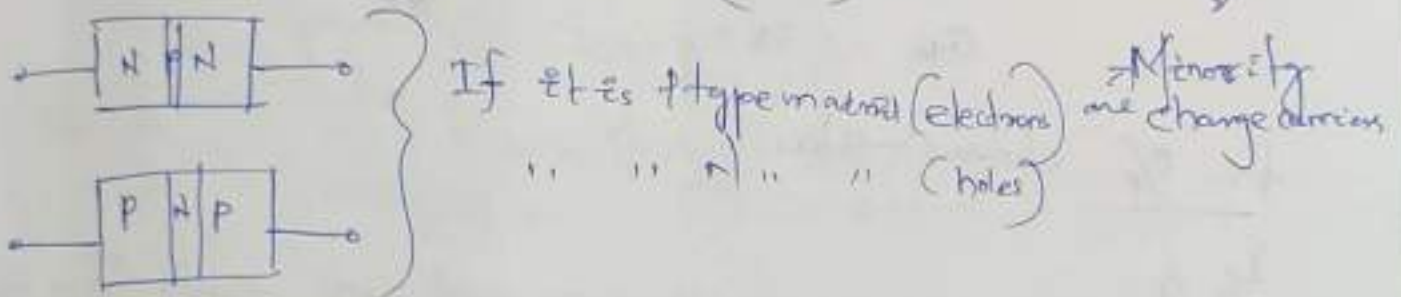 N P N
If it is P type material (electrons) are Minority
charge carriers
" " N " " (holes)
P N P